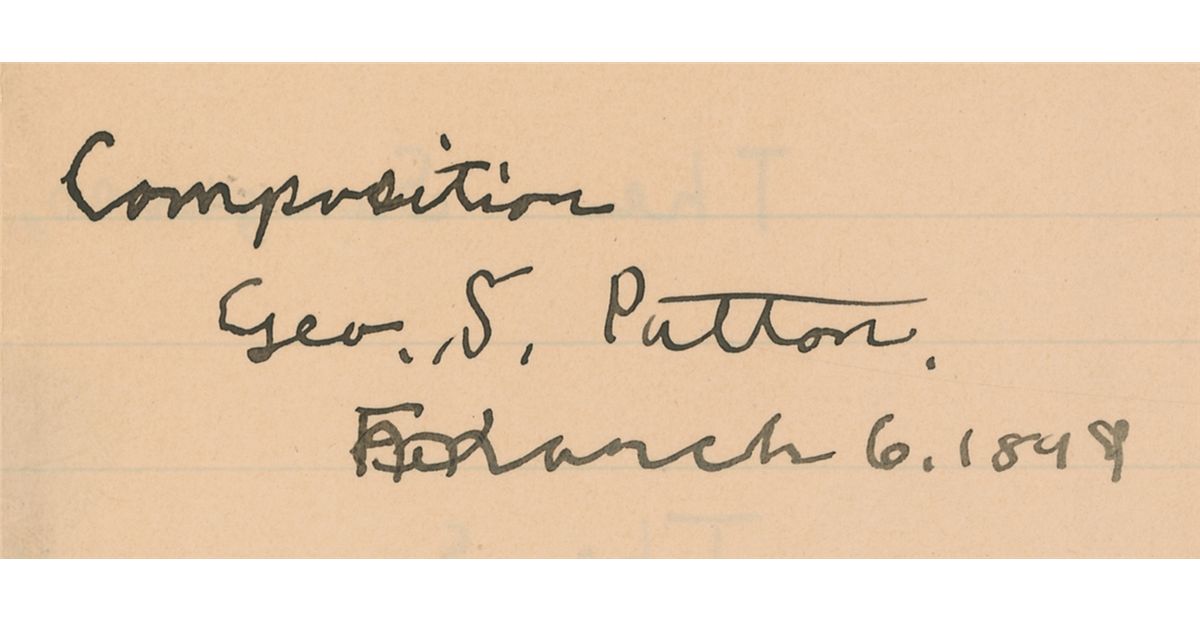 Composition
Geo. S. Patton.
March 6. 1899